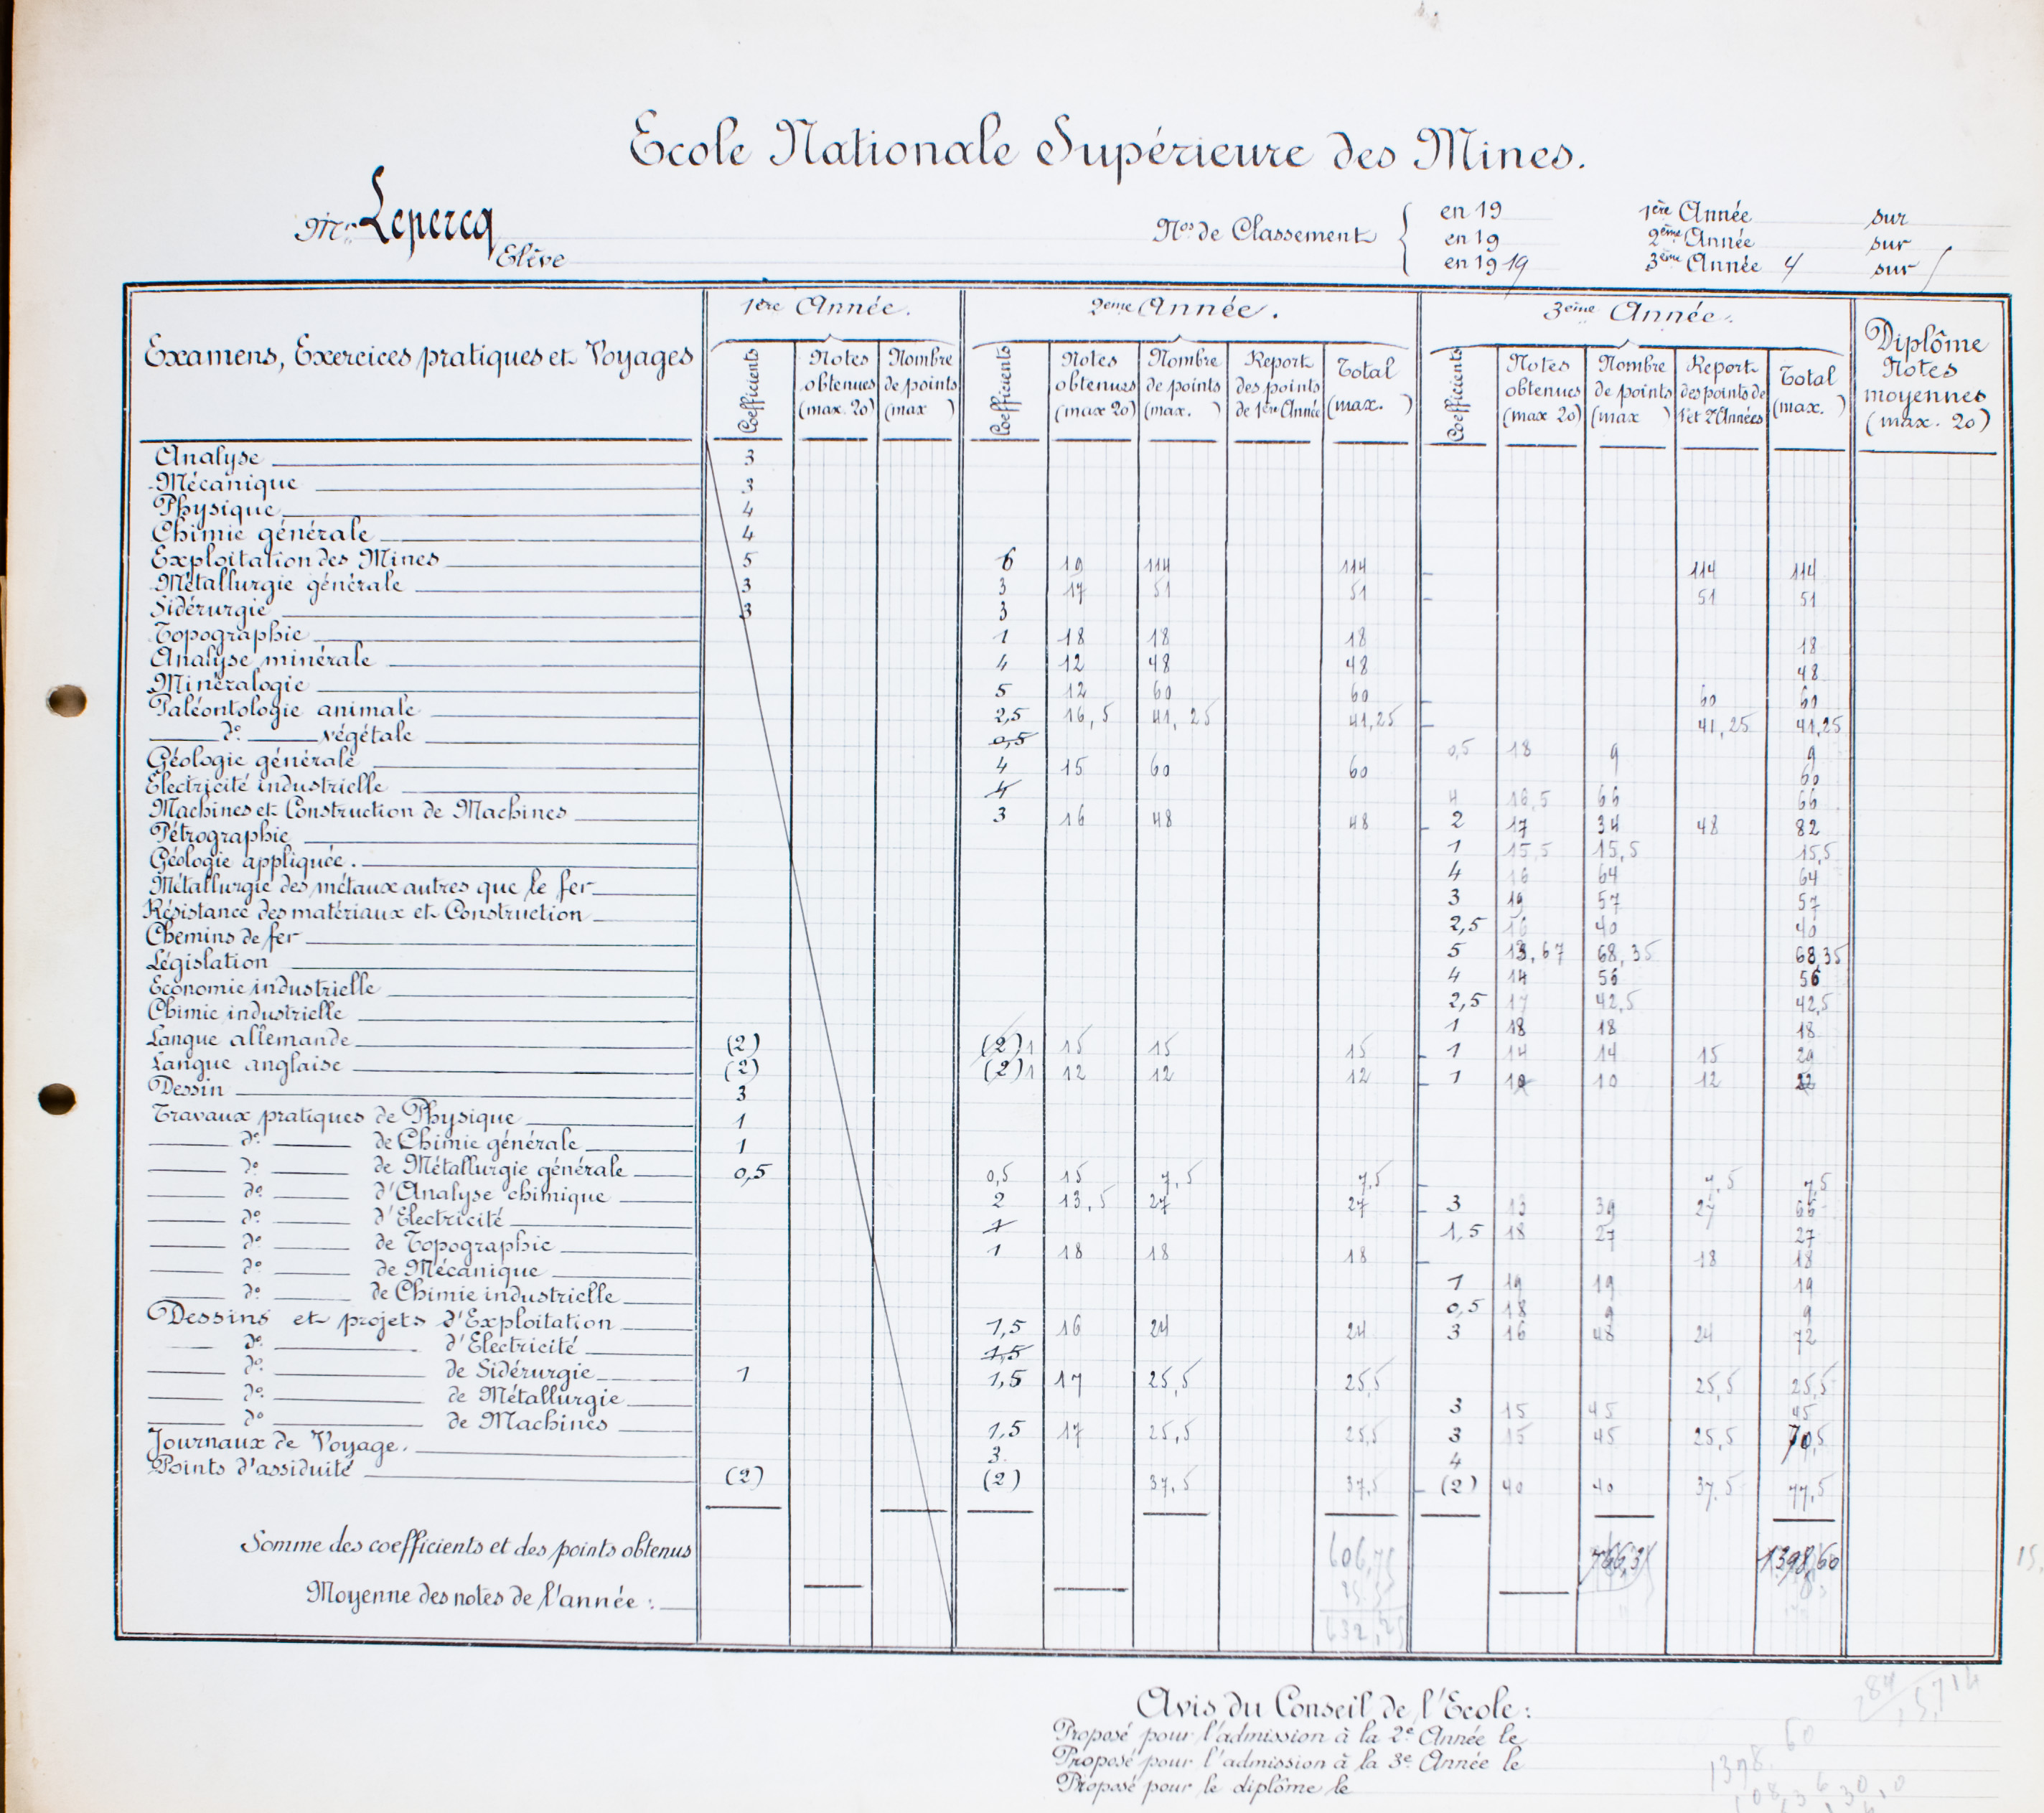 Ecole Nationale Supérieure des Mines.
Mr. Lepercq
Elève
Nos de Classement
en 19 1ère Année sur
en 19 2ème Année sur
en 1919 3ème Année 4 sur
Examens, Exercices pratiques et Voyages
1ère Année. 2ème Année. 3ème Année.
Diplôme Notes moyennes (max. 20)
Coefficients Notes obtenues (max. 20) Nombre de points (max )
Coefficients Notes obtenues (max 20) Nombre de points (max. ) Report des points de 1ère Année Total (max. )
Coefficients Notes obtenues (max 20) Nombre de points (max ) Report des points de 1 et 2 Années Total (max. )
Analyse 3
Mécanique 3
Physique 4
Chimie générale 4
Exploitation des Mines 5 6 19 114 114 114 114
Métallurgie générale 3 3 17 51 51 51 51
Sidérurgie 3 3
Topographie 1 18 18 18 18
Analyse minérale 4 12 48 48 48
Minéralogie 5 12 60 60 60 60
Paléontologie animale 2,5 16,5 41,25 41,25 41,25 41,25
do végétale 0,5 0,5 18 9 9
Géologie générale 4 15 60 60 60
Electricité industrielle 4 4 16,5 66 66
Machines et Construction de Machines 3 16 48 48 2 17 34 48 82
Pétrographie 1 15,5 15,5 15,5
Géologie appliquée. 4 16 64 64
Métallurgie des métaux autres que le fer 3 19 57 57
Résistance des matériaux et Construction 2,5 16 40 40
Chemins de fer 5 13,67 68,35 68,35
Législation 4 14 56 56
Economie industrielle 2,5 17 42,5 42,5
Chimie industrielle 1 18 18 18
Langue allemande (2) (2) 1 15 15 15 1 14 14 15 29
Langue anglaise (2) (2) 1 12 12 12 1 10 10 12 22
Dessin 3
Travaux pratiques de Physique 1
do de Chimie générale 1
do de Métallurgie générale 0,5 0,5 15 7,5 7,5 7,5 7,5
do d'Analyse chimique 2 13,5 27 27 3 13 39 27 66
do d'Electricité 1 1,5 18 27 27
do de Topographie 1 18 18 18 18 18
do de Mécanique 1 19 19 19
do de Chimie industrielle 0,5 18 9 9
Dessins et projets d'Exploitation 1,5 16 24 24 3 16 48 24 72
do d'Electricité 1,5
do de Sidérurgie 1 1,5 17 25,5 25,5 25,5 25,5
do de Métallurgie 3 15 45 45
do de Machines 1,5 17 25,5 25,5 3 15 45 25,5 70,5
Journaux de Voyage. 3 4
Points d'assiduité (2) (2) 37,5 37,5 (2) 40 40 37,5 77,5
Somme des coefficients et des points obtenus 606,75 766,35 1398,60
25,5
632,25
Moyenne des notes de l'année :
Avis du Conseil de l'Ecole :
Proposé pour l'admission à la 2e Année le
Proposé pour l'admission à la 3e Année le
Proposé pour le diplôme le